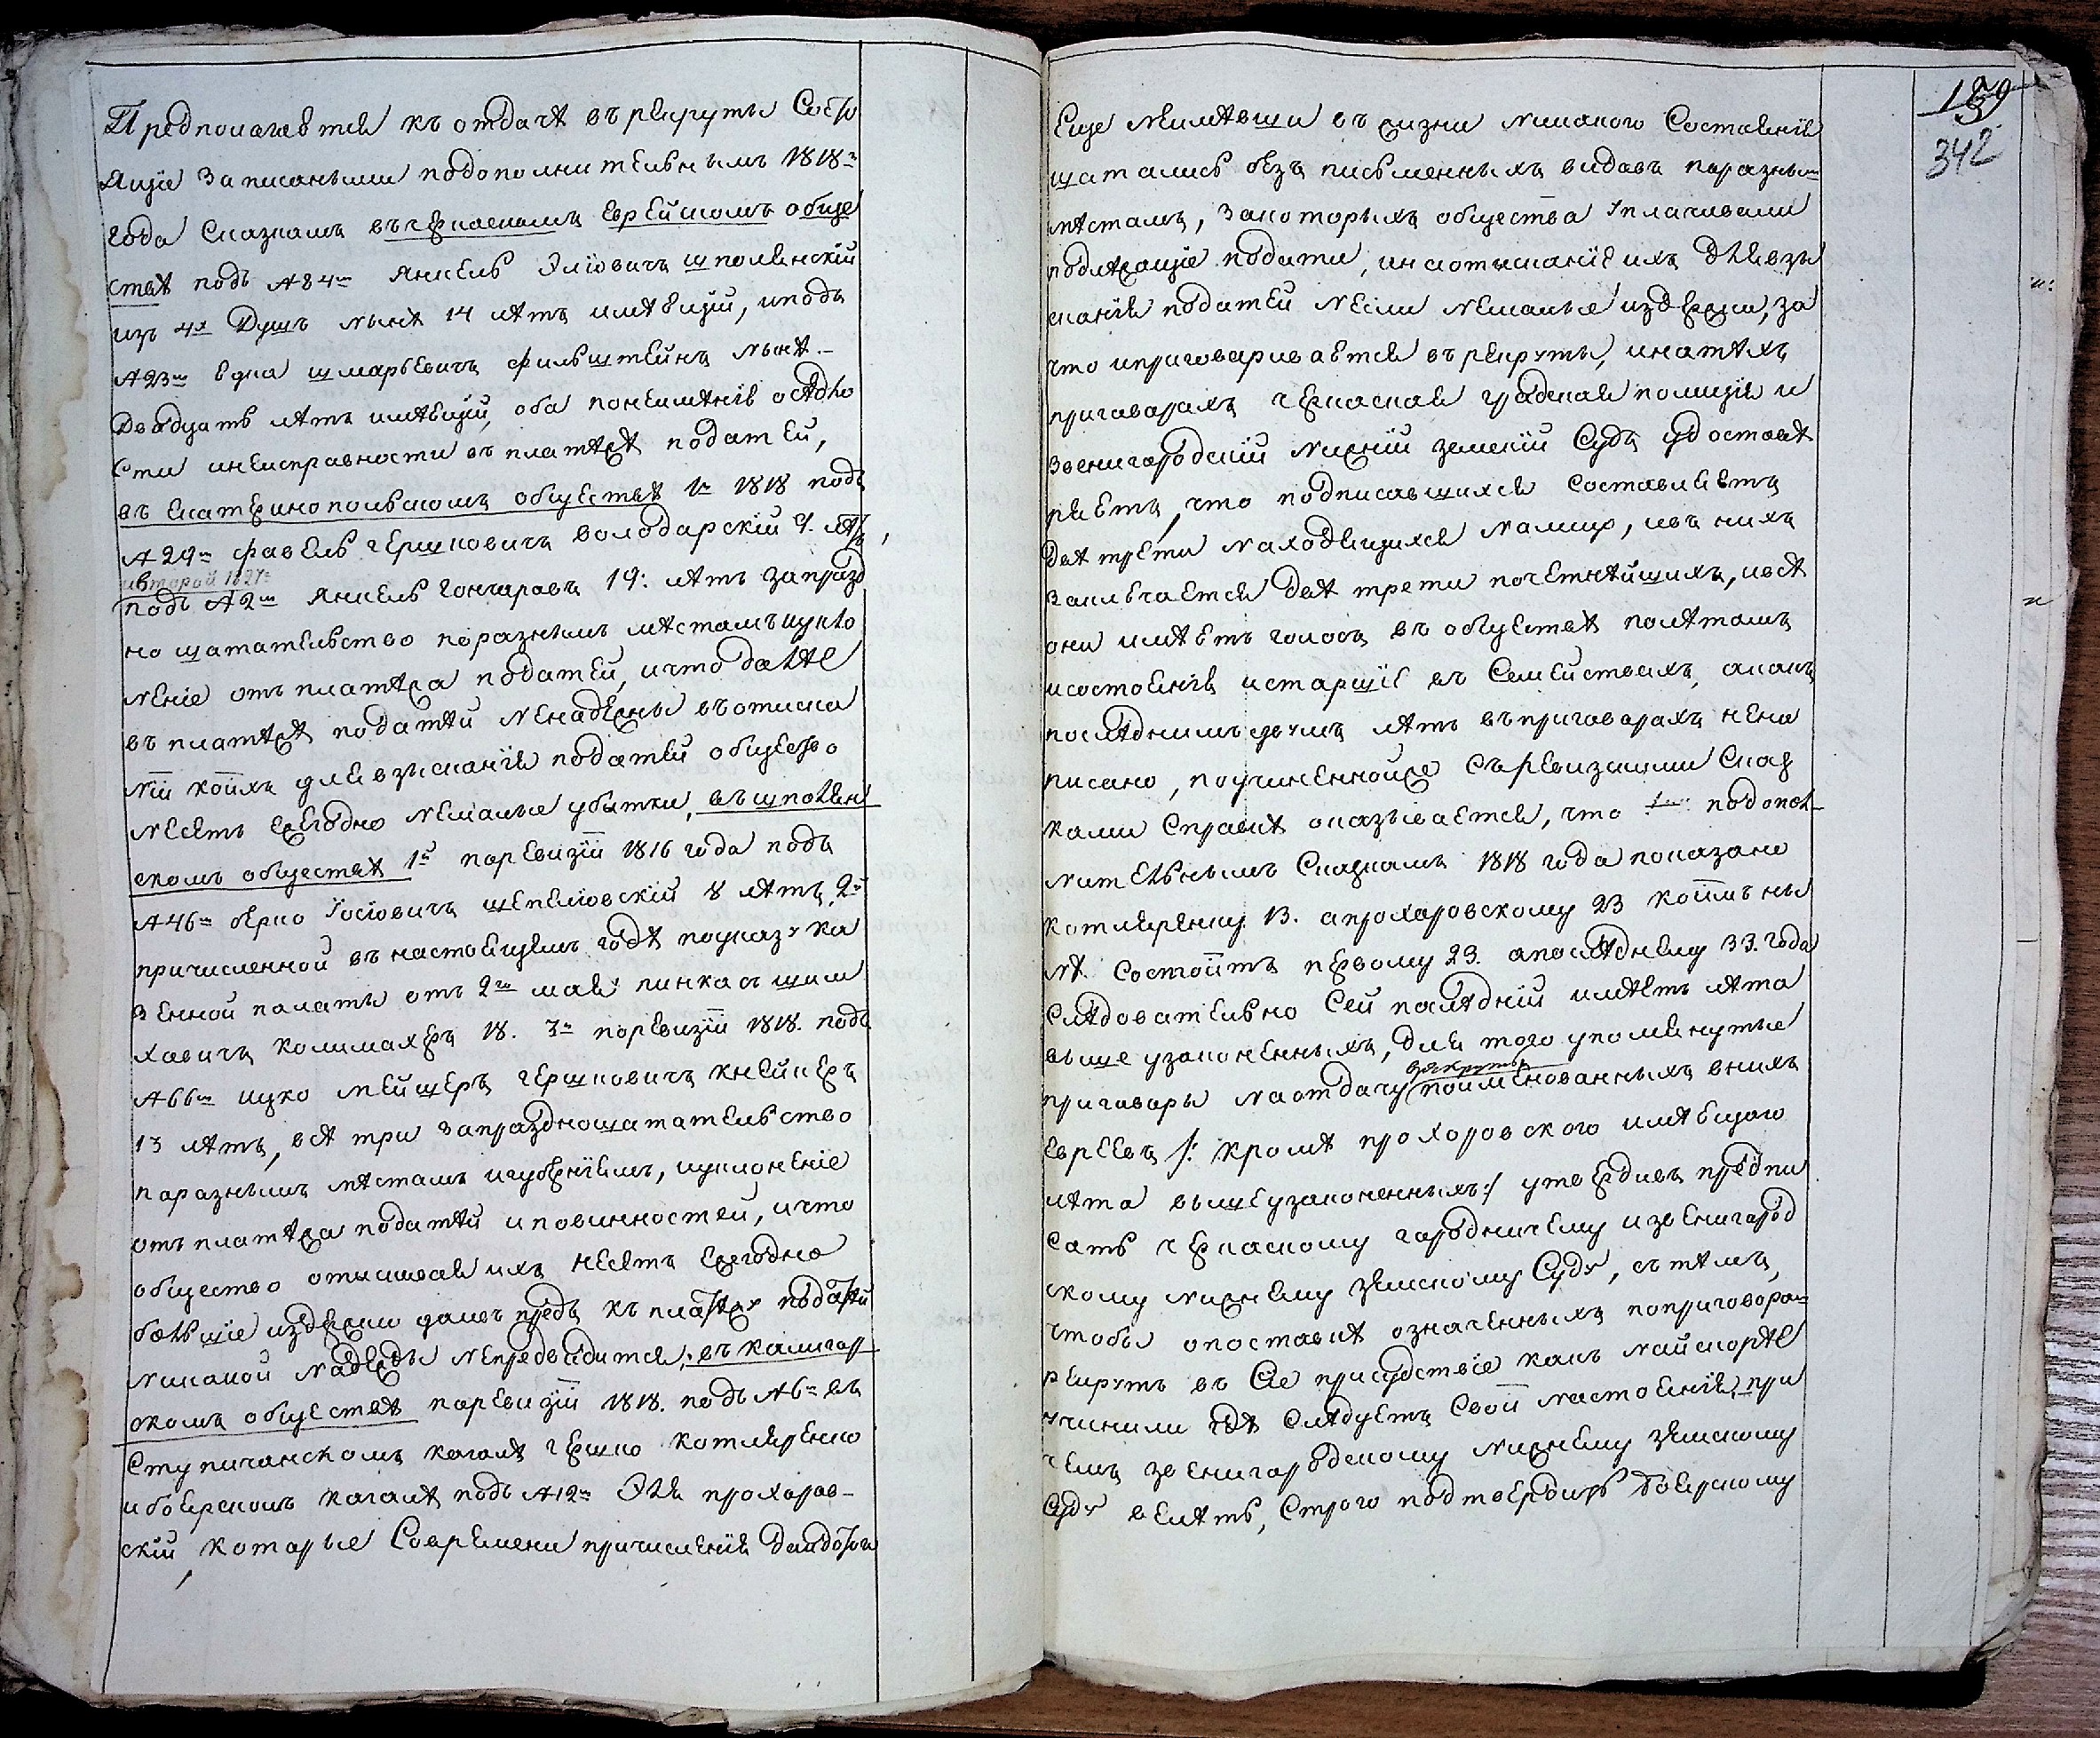 Предполагаетсѧ къ отдачѣ въ рекруты Состо
ѧщіе Записаными подополнительнымъ 1818го
года Сказкамъ въ черкаскомъ Еврейскомъ обще
ствѣ подъ №84м Янкель Эліовичъ шполянскій
изъ 4х Душъ нынѣ 14 лѣтъ имѣющій, иподъ
№23м шмарьевичъ фильштейнъ нынѣ
Двадцать лѣтъ имѣющій, оба понеимѣнію осѣдло
сти инеисправности въ платежѣ податей,
въ Екатеринопольскомъ обществѣ 1й 1818 подъ
№29м фавель гершковичъ володарскій
ивторой 1827:
подъ №2м Янкель Гончаровъ 19: лѣтъ запразд
но шатательство поразнымъ мѣстамъ иукло
неніе отъ платежа податей, ичто далѣе
въ платежѣ податей ненадежны въотиска
ніи коихъ длѧ взысканіѧ податей общество
несетъ ежегодно немалые убытки, въ шполѧн
скомъ обществѣ 1й поревизіи 1816 года подъ
№46м берко Іосіовичъ шепеліовскій 8 лѣтъ, 2й
причисленной въ настоѧщемъ годѣ поуказу ка
зенной палаты отъ 2го маѧ пинкас шим
ховичъ колимахеръ 18. 3й поревизіи 1818. подъ
№66м ицко мейшеръ гершковичъ кнейперъ
13 лѣтъ, всѣ три запраздношатательство
поразнымъ мѣстамъ игуберніѧмъ, иуклоненіе
отъ платежа податей и повинностей, ичто
общество отыскиваѧ ихъ несетъ ежегодно
большіе издержки далѣе предъ къ платежу податей
никакой надежды непредвидитсѧ, въ калигор
скомъ обществѣ поревизіи 1818. подъ №6м въ
Ступичанскомъ кагалѣ гершко Котлѧренко
и боѧрскомъ кагалѣ подъ №12м Элѧ прохоров-
скій, которые Современи причисленіѧ
159
342
Еще неимѣвши въ жизни никакого Состоѧніѧ
шатались безъ письменныхъ видовъ поразнымъ
мѣстамъ, закоторыхъ общества уплачивали
подлежащіе подати, инаотысканіе ихъ длѧ взы
сканіѧ податей несли немалые издержки, за
что иприговариваетсѧ въ рекруты, инатѣхъ
приговорахъ черкаскаѧ градскаѧ полиціѧ и
Звенигородскій нижній земскій Судъ удостовѣ
рѧетъ, что подписавшихсѧ составлѧетъ
двѣ трети находѧщихсѧ налицо, ивъ нихъ
заключаетсѧ двѣ трети почетнѣйшихъ, ивсѣ
они имѣетъ голосъ въ обществѣ полѣтамъ
исостоѧнію истаршіе въ Семействахъ, акакъ
послѣднимъ двумъ лѣтъ въприговорахъ нена
писано, поучиненнойже Съревизкими Сказ
ками Справкѣ оказываетсѧ, что подопол-
нительнымъ Сказкамъ 1818 года показано
Котлѧренку 13. апрохоровскому 23 коимъ ны
нѣ. Состоитъ первому 23. апослѣднему 33. года
Слѣдовательно Сей послѣдній имѣетъ лѣта
выше узаконенныхъ, длѧ того упомѧнутые
врекруты
приговоры наотдачу поименованныхъ внихъ
Евреевъ /: Кромѣ прохоровского имѣющого
лѣта вышеузаконенныхъ:/ утвердивъ предпи
сать черкаскому городничему извенигород
скому нижнему земскому Суду, съ тѣмъ,
чтобы опоставкѣ означенныхъ поприговорам
рекрутъ въ Сіе присудствіе какъ найскорѣе
учинили гдѣ Слѣдуетъ Свои настоѧніѧ, при
чемъ звенигородскому нижнему земскому
Суду велѣть, Строго подтвердить боѧрскому